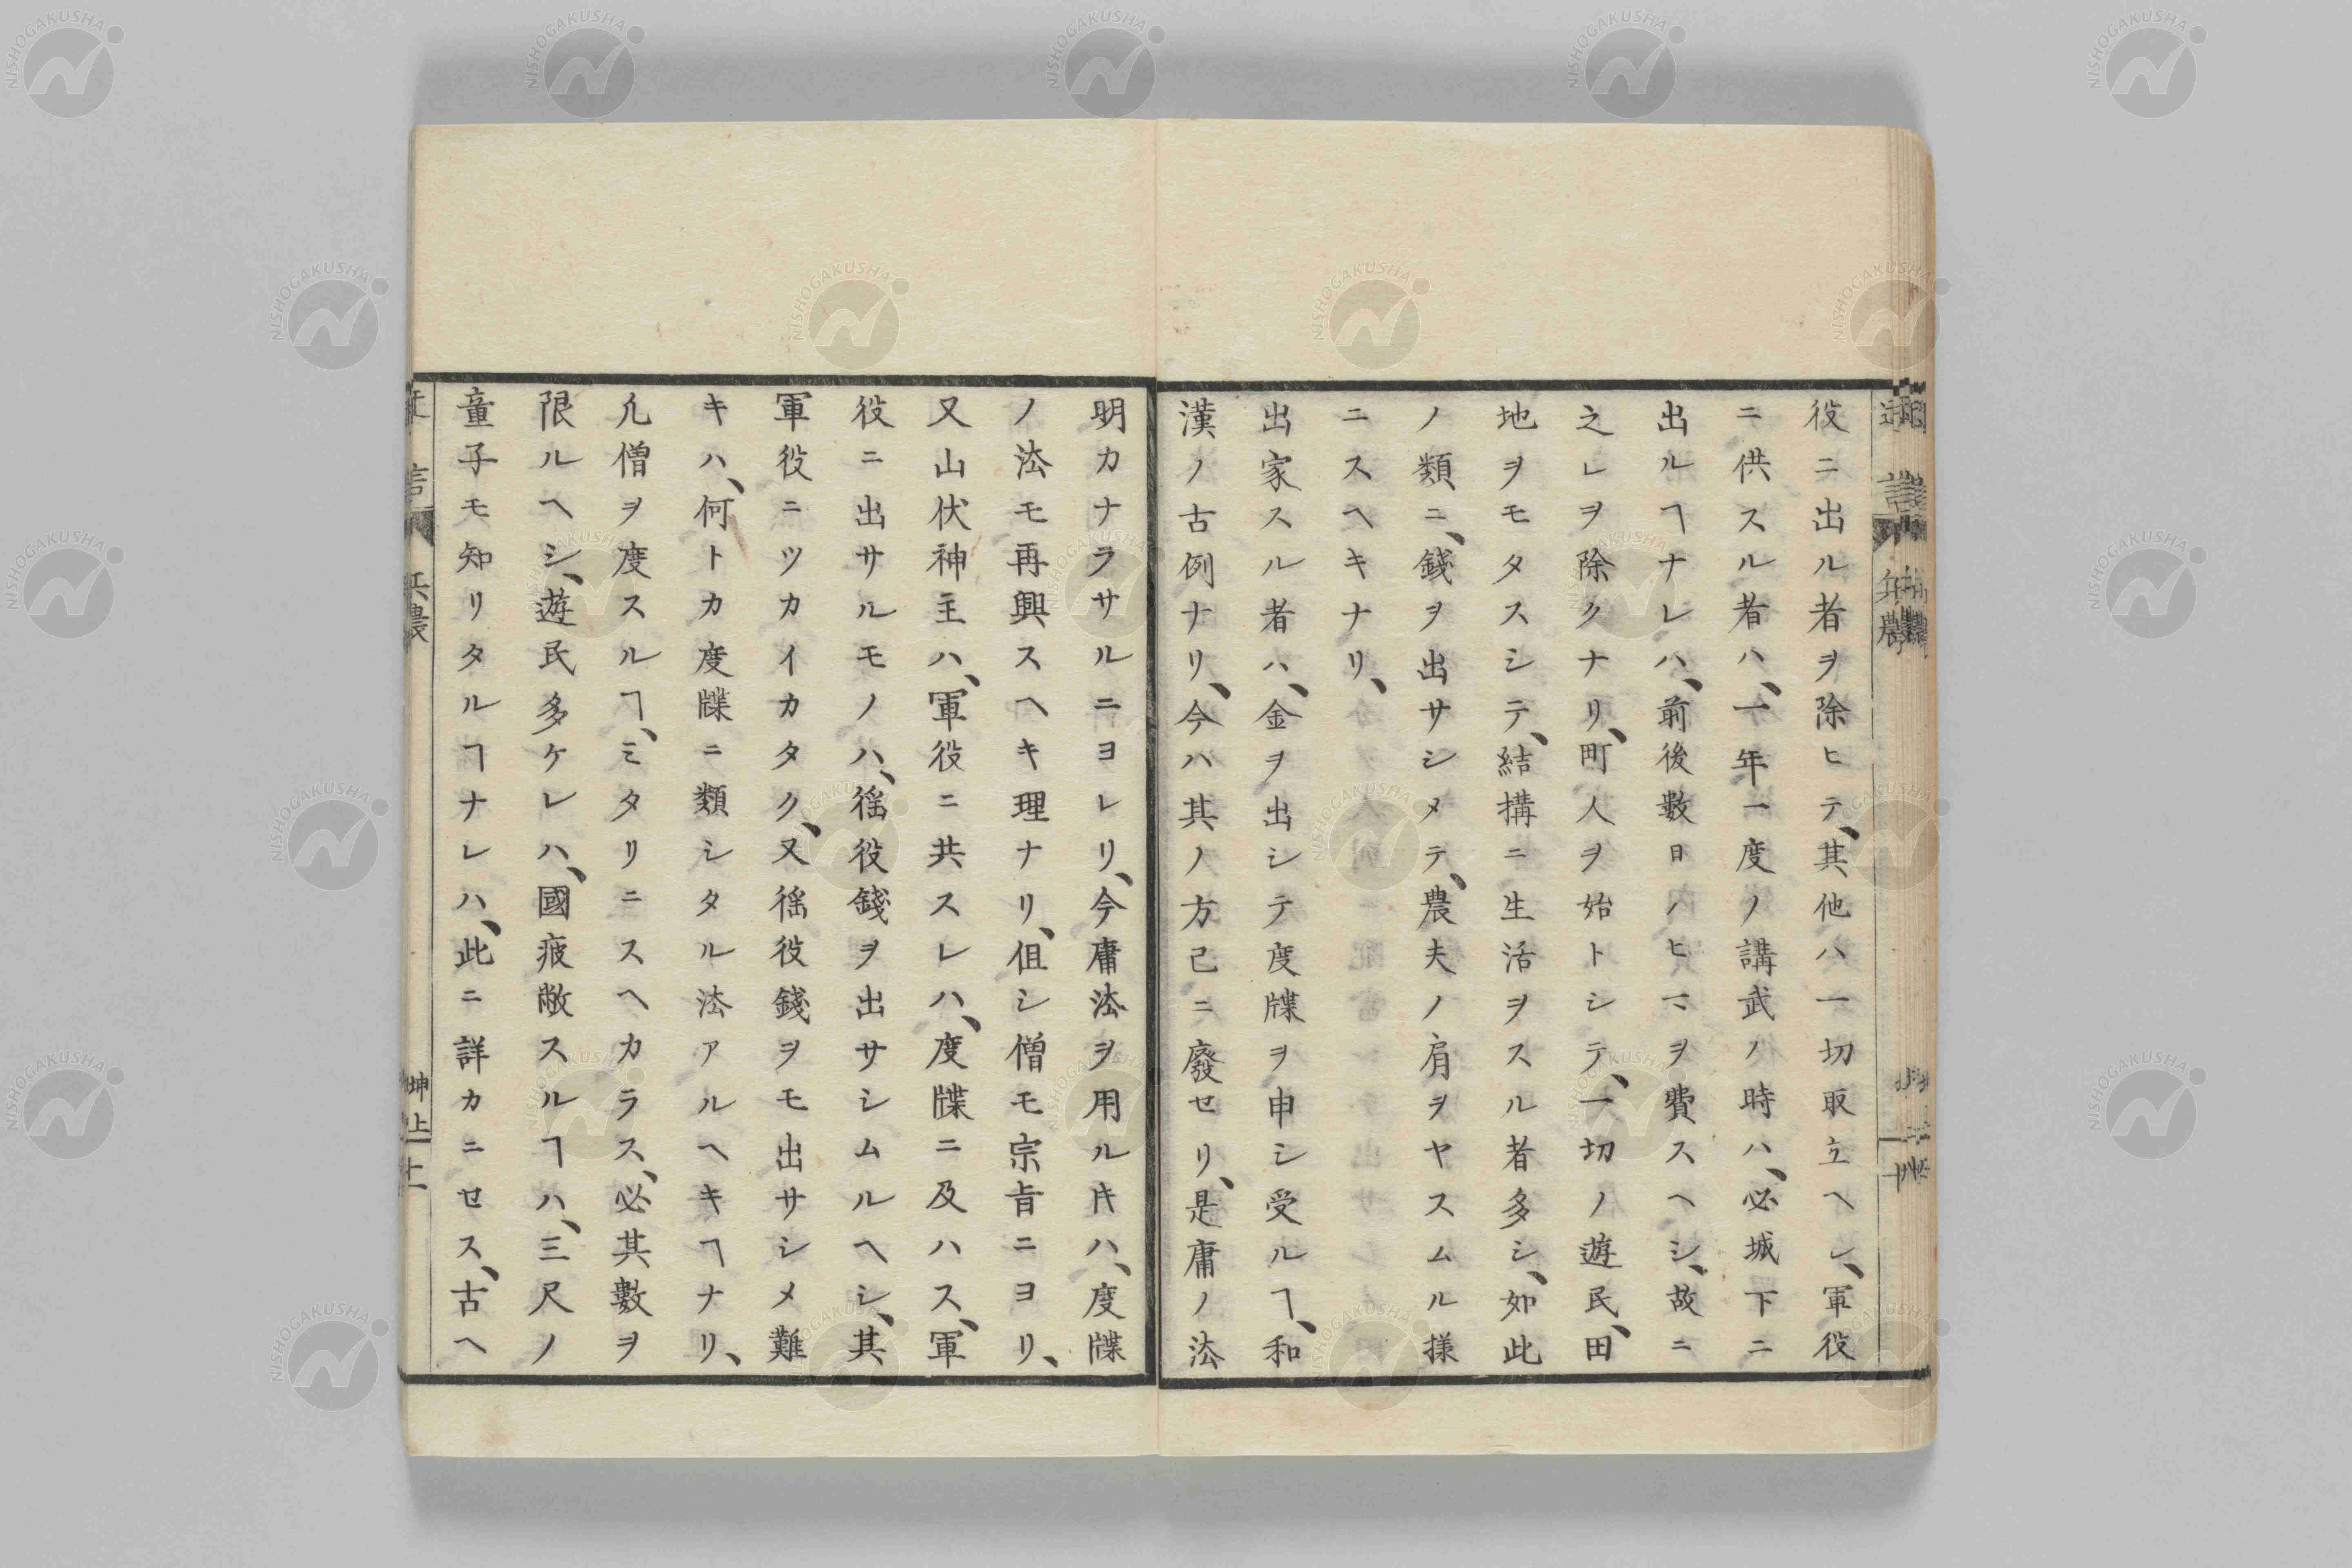 役ニ出ル者ヲ除ヒテ、其他ハ一切取立ヘシ、軍役
ニ供スル者ハ、一年一度ノ講武ノ時ハ、必城下ニ
出ルヿナレハ、前後數日ノヒマヲ費スヘシ、故ニ
之レヲ除クナリ、町人ヲ始トシテ、一切ノ遊民、田
地ヲモタスシテ、結搆ニ生活ヲスル者多シ、如此
ノ類ニ、錢ヲ出サシメテ、農夫ノ肩ヲヤスムル樣
ニスヘキナリ、
出家スル者ハ、金ヲ出シテ度牒ヲ申シ受ルヿ、和
漢ノ古例ナリ、今ハ其ノ方己ニ廢セリ、是庸ノ法
明カナラサルニヨレリ、今庸法ヲ用ルキハ、度牒
ノ法モ再興スヘキ理ナリ、伹シ僧モ宗旨ニヨリ、
又山伏神主ハ、軍役ニ共スレハ、度牒ニ及ハス、軍
役ニ出サルモノハ、徭役錢ヲ出サシムルヘシ、其
軍役ニツカイカタク、又徭役錢ヲモ出サシメ難
キハ、何トカ度牒ニ類シタル法アルヘキヿナリ、
凢僧ヲ度スルヿ、ミタリニスヘカラス、必其數ヲ
限ルヘシ、遊民多ケレハ、國疲敝スルヿハ、三尺ノ
童子モ知リタルヿナレハ、此ニ詳カニセス、古ヘ
兵農
坤上
NISHOGAKUSHA